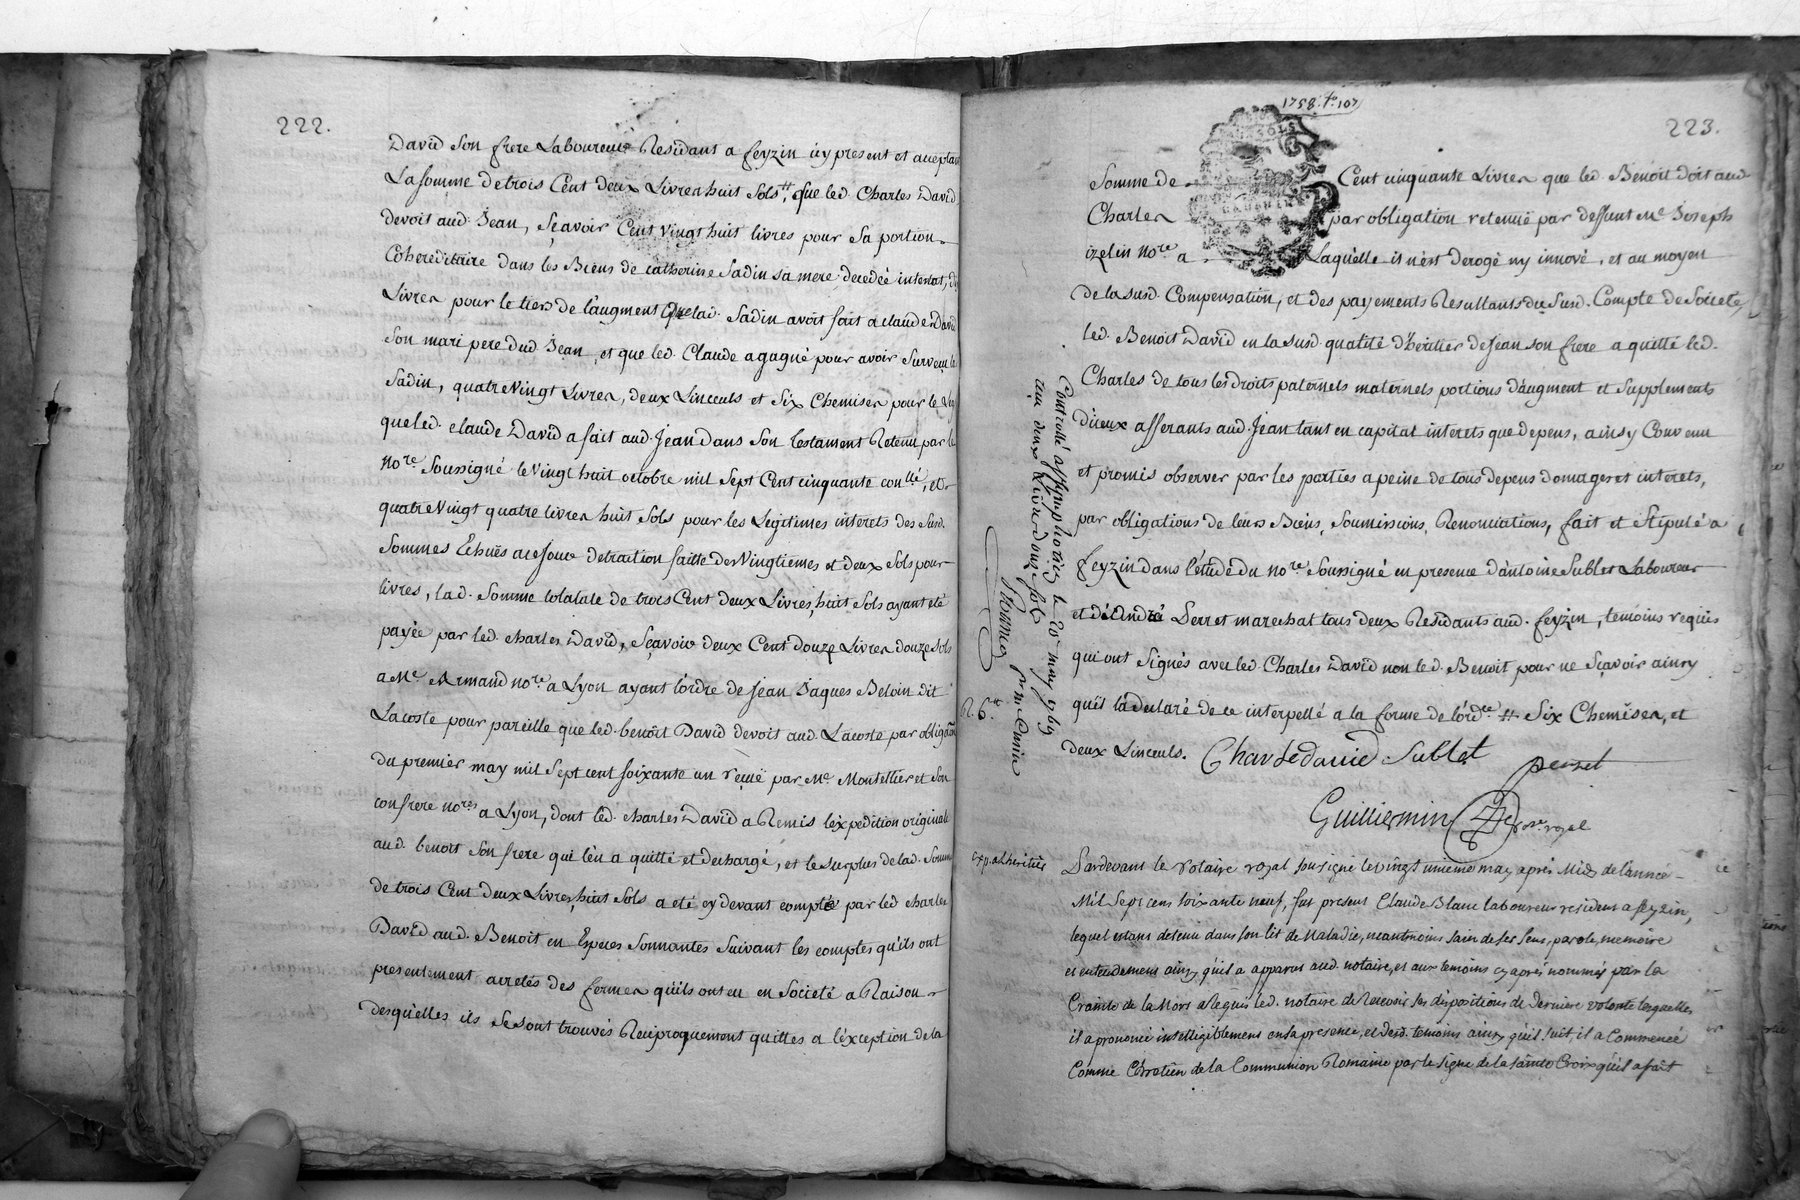 222.
David son frere Laboureur Residant a feyzin icy present et acceptan
La somme de trois Cent deux Livres huit sols ₶, que led. Charles David
devoit aud. Jean, sçavoir Cent vingt huit livres pour sa portion
Cohereditaire dans les Biens de catherine Sadin sa mere decedée intestat, d
Livres pour le tiers de l'augment que lad. Sadin avoit fait a claude David
son mari pere dud. Jean, et que led. Claude a gagné pour avoir survecu la
Sadin, quatre vingt Livres, deux Linceuls et six Chemises pour le leg
que led. claude David a fait aud. Jean dans son testament Retenu par le
No.re soussigné le vingt huit octobre mil sept Cent cinquante con.llé, et
quatre vingt quatre livres huit sols pour les Legitimes interets des susd.
sommes Echuës a ce jour detraction faitte des vingtiemes et deux sols pour
livres, lad. somme totalale de trois Cent deux Livres, huit sols ayant eté
payée par led. charles David, sçavoir deux Cent douze Livres douze sols
a M.e Armand no.re a Lyon ayant l'ordre de Jean Jaques Beloin dit
Lacoste pour pareille que led. benoît David devoit aud. Lacoste par obligaon
du premier may mil sept cent soixante un reçuë par M.e Montellier et son
confrere no.res a Lyon, dont led. charles David a Remis l'expedition originale
aud. benoit son frere qui l'en a quitté et dechargé, et le surplus de lad. somme
de trois Cent deux Livres, huit sols a eté cy devant compté par led charles
David aud. Benoit en Especes sonnantes suivant les comptes qu'ils ont
presentement arretés des fermes qu'ils ont eu en société a Raison
desqu'elles ils se sont trouvés Reciproquement quittes a l'exception de la
1758. f.o 107
223.
somme de Cent cinquante Livres que led. Benoit doit aud
Charles par obligation retenuë par deffunt M.e Joseph
izelin no.re a Laqu'elle il n'est derogé ny innové, et au moyen
de la susd. Compensation, et des payements Resultants du susd. Compte de Société,
led. Benoit David en la susd. qualité d'héritier de Jean son frere a quitté led.
Charles de tous les droits paternels maternels portions d'augment et supplements
d'iceux afferants aud. Jean tant en capital interets que depens, ainsy Convenu
et promis observer par les parties a peine de tous depens domages et interets,
par obligations de leurs Biens, soumissions, Renonciations, fait et stipulé a
feyzin dans l'étude du no.re soussigné en presence d'antoine Sublet Laboureur
et d'André Perret marechal tous deux Residants aud. feyzin, temoins requis
qui ont signés avec led. Charles David non led. Benoit pour ne sçavoir ainsy
qu'il l'a declaré de ce interpellé a la forme de l'ord.ce # six Chemises, et
deux Linceuls. Charle david Sublet
perret
Guilliermin no.re royal
Controllé a st simphorien le 20 may 1769
reçu deux livres douze sols
R. 6.₶
Exp. al heritier
Pardevant le Notaire royal soussigné le vingt unieme may après Midy de l'année
Mil sept cens soixante neuf, fut present Claude Blanc laboureur residant a feyzin,
lequel estant detenu dans son lit de Maladie, neantmoins sain de ses sens, parole, memoire
et entendement ainsy qu'il a apparut aud. notaire, et aux temoins cy après nommés par la
Crainte de la Mort a Requis led. notaire de Recevoir ses dispositions de derniere volonté lesquelles
il a prononcé intelligiblement en sa presence, et desd. temoins ainsy qu'il suit, il a Commencé
Comme Chretien de la Communion Romaine par le signe de la sainte Croix qu'il a fait